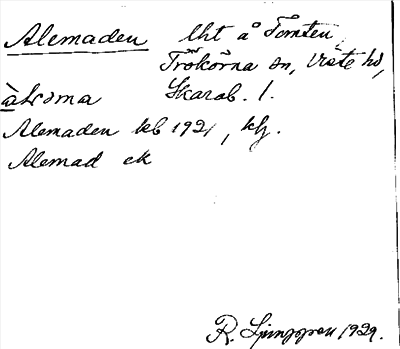 Alemaden lht å Tomten
Trökörna sn, Viste hd,
Skarab. l.
Alemaden kb 1921, kfj.
Alemad ek
R. Ljunggren 1929.